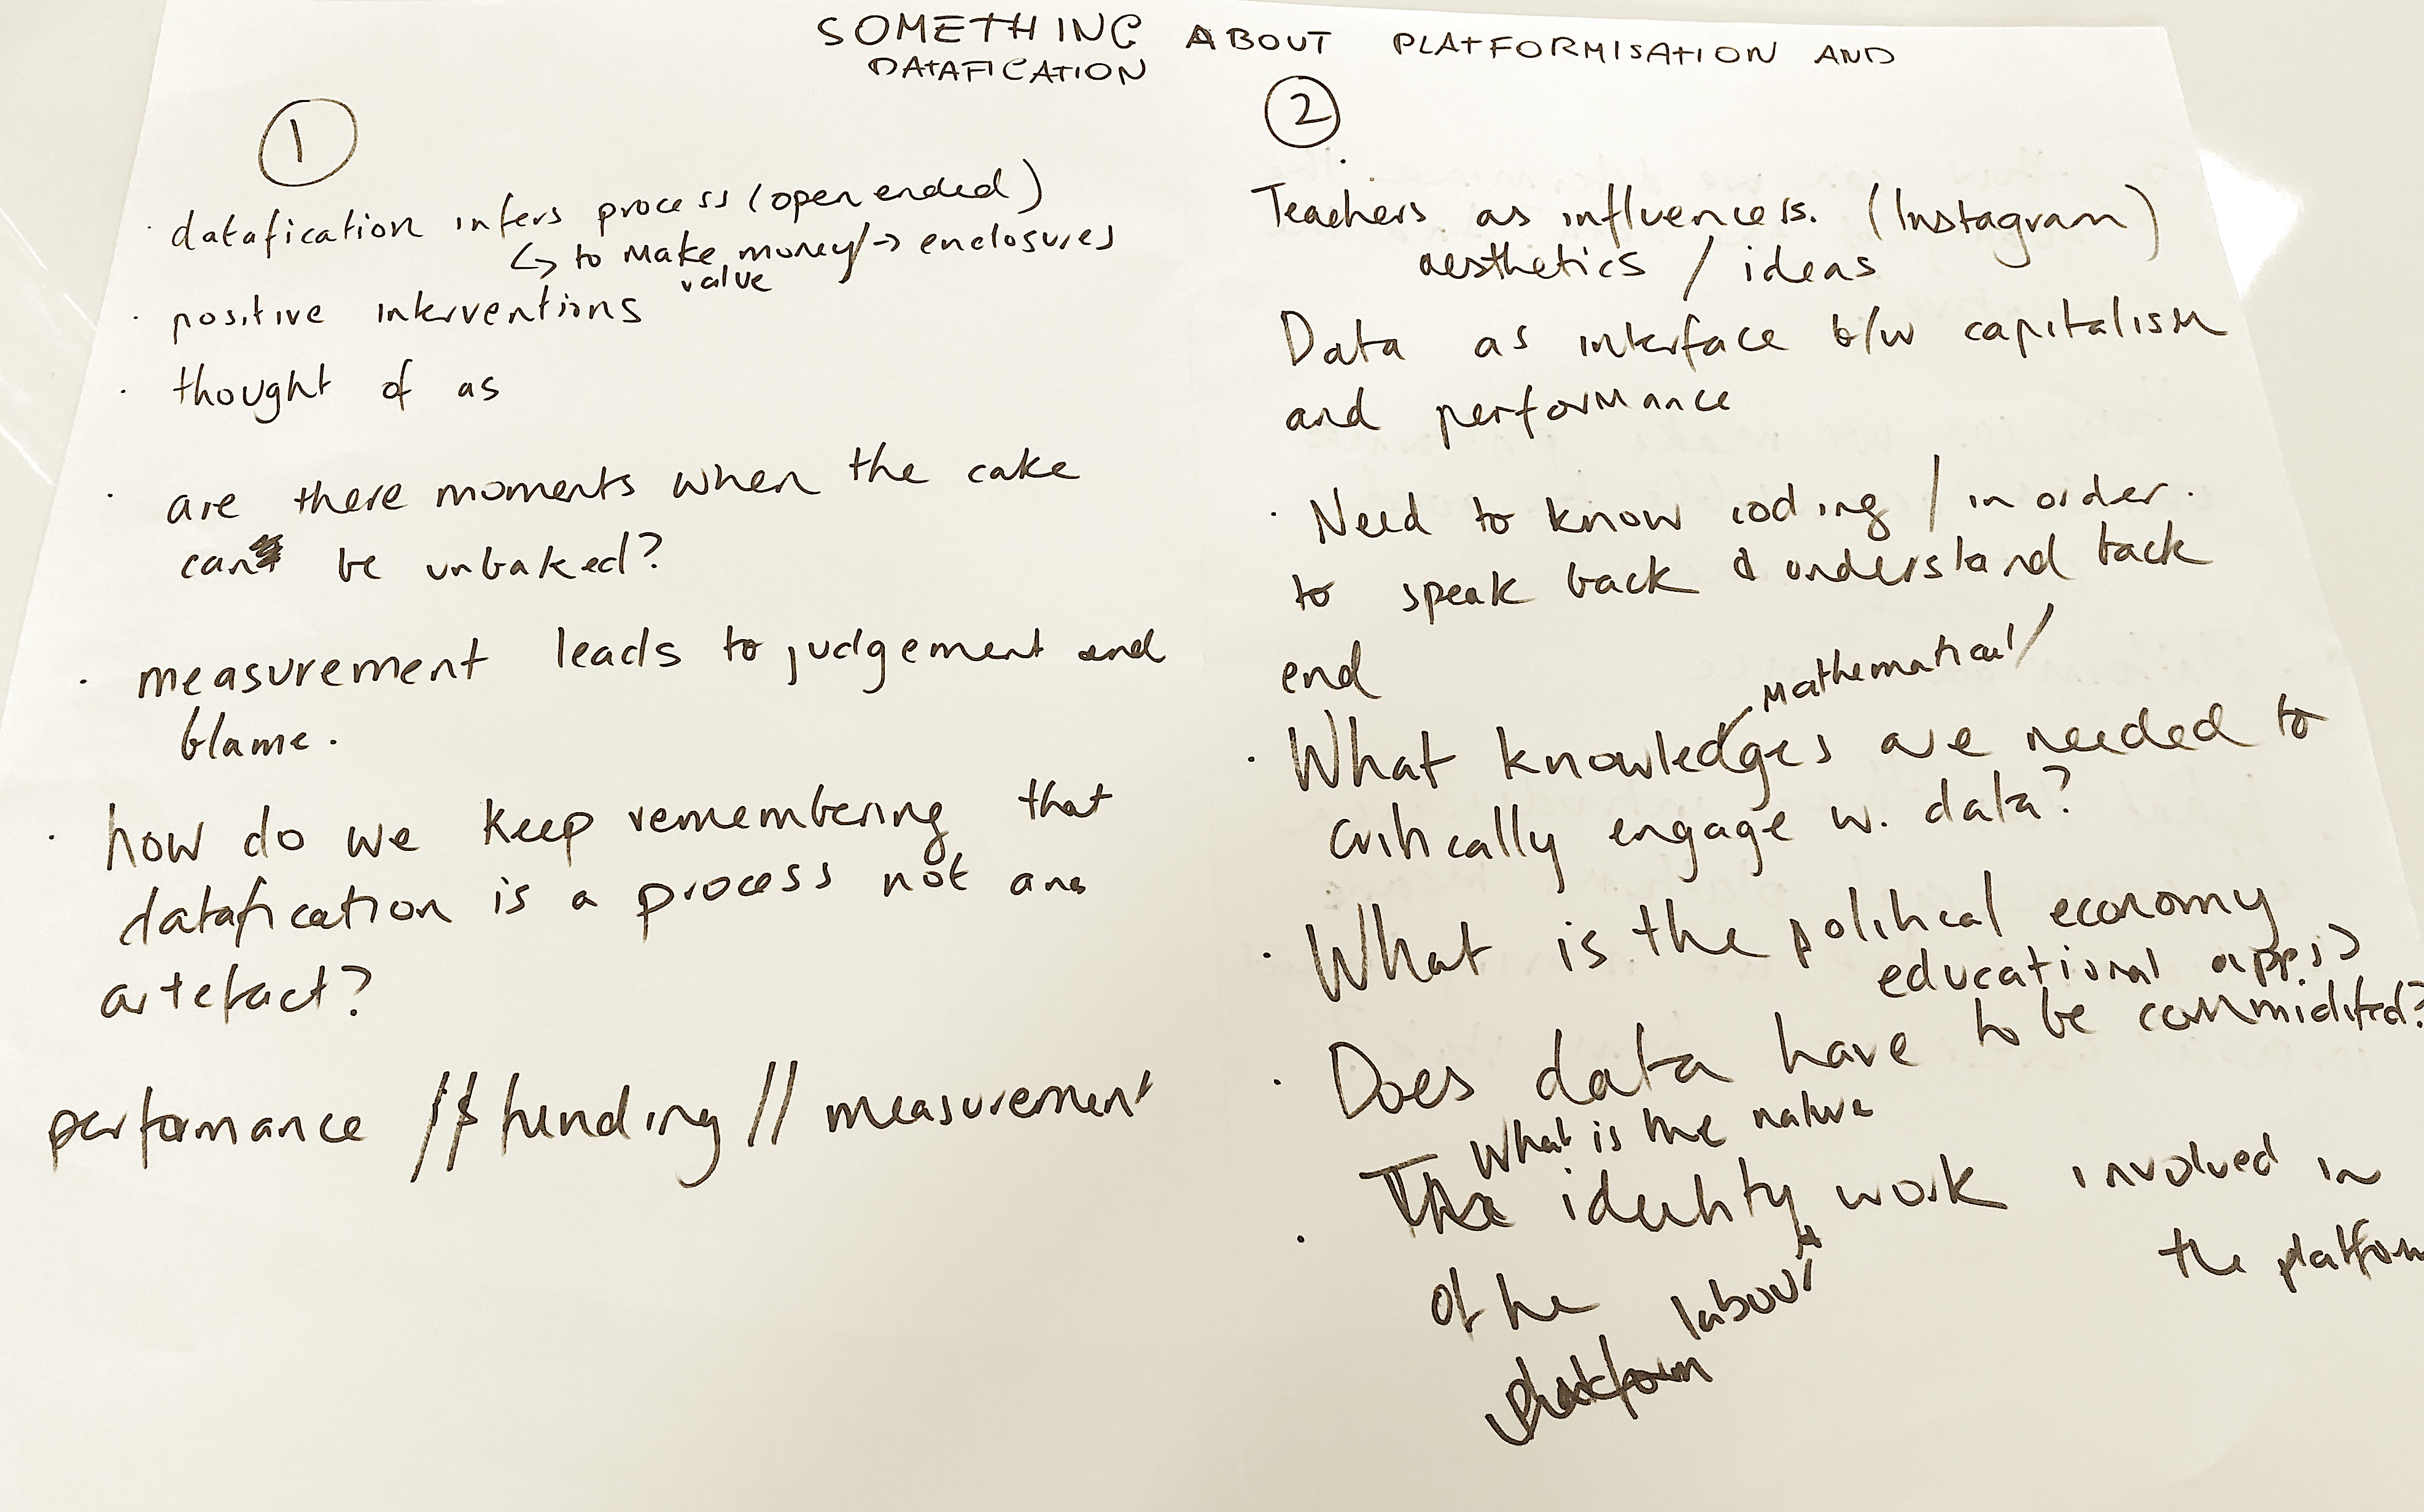 SOMETHING ABOUT PLATFORMISATION AND
DATAFICATION
1
· datafication infers process (open ended)
↳ to make money/→ enclosures
value
· positive interventions
· thought of as
· are there moments when the cake
can be unbaked?
· measurement leads to judgement and
blame.
· how do we keep remembering that
datafication is a process not an
artefact?
performance // $ funding // measurement
2
Teachers as influencers. (Instagram)
aesthetics / ideas
Data as interface b/w capitalism
and performance
· Need to know coding / in order.
to speak back & understand back
end
mathematical/
· What knowledges are needed to
critically engage w. data?
· What is the political economy
educational apps?
· Does data have to be commidified?
What is the nature
· The identity work involved in
the platform
of the labour
platform